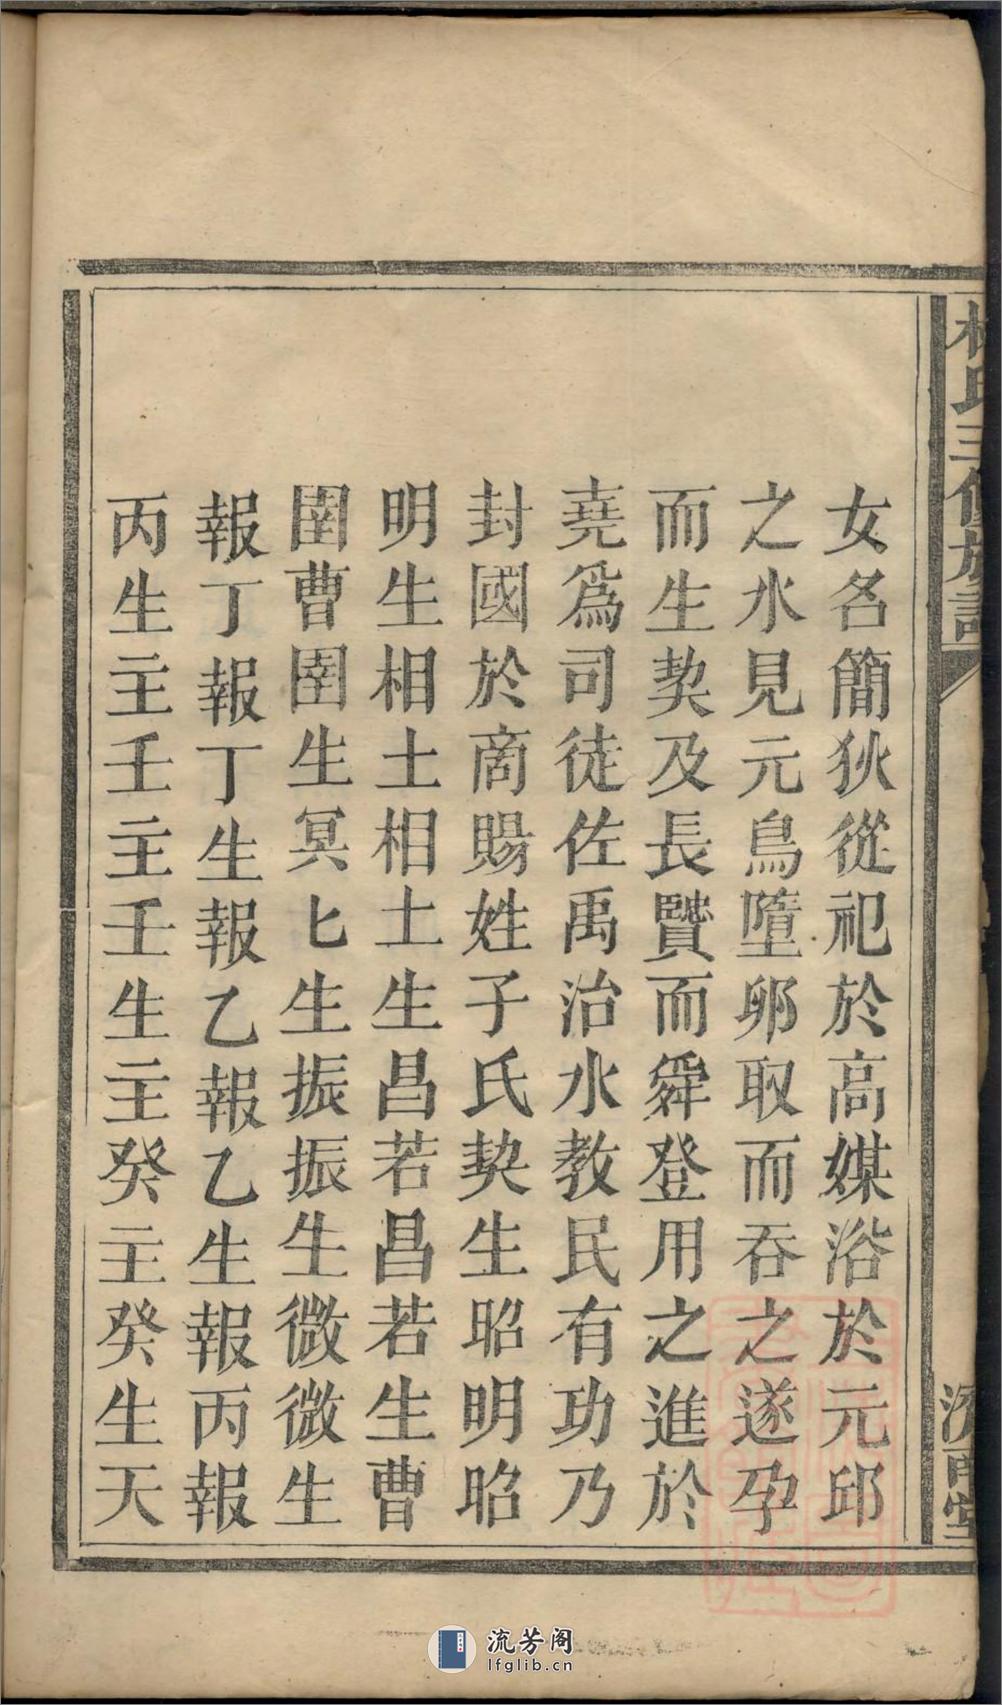 林氏三修族譜
濟南堂
女名簡狄從祀於高媒浴於元邱
之水見元鳥墮卵取而吞之遂孕
而生契及長賢而舜登用之進於
堯爲司徒佐禹治水教民有功乃
封國於商賜姓子氏契生昭明昭
明生相土相土生昌若昌若生曹
圉曹圉生冥匕生振振生微微生
報丁報丁生報乙報乙生報丙報
丙生主壬主壬生主癸主癸生天
流芳阁
lfglib.cn